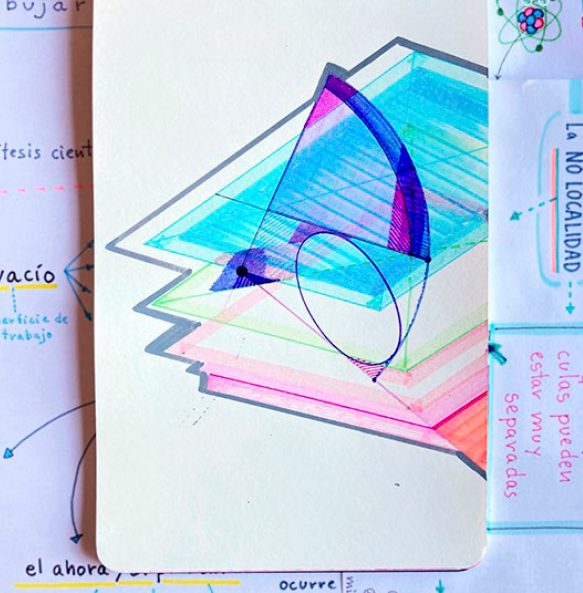 bujar
tesis cient
vacío
erficie de
trabajo
el ahora
ocurre
La NO LOCALIDAD
culas pueden
estar muy
separadas